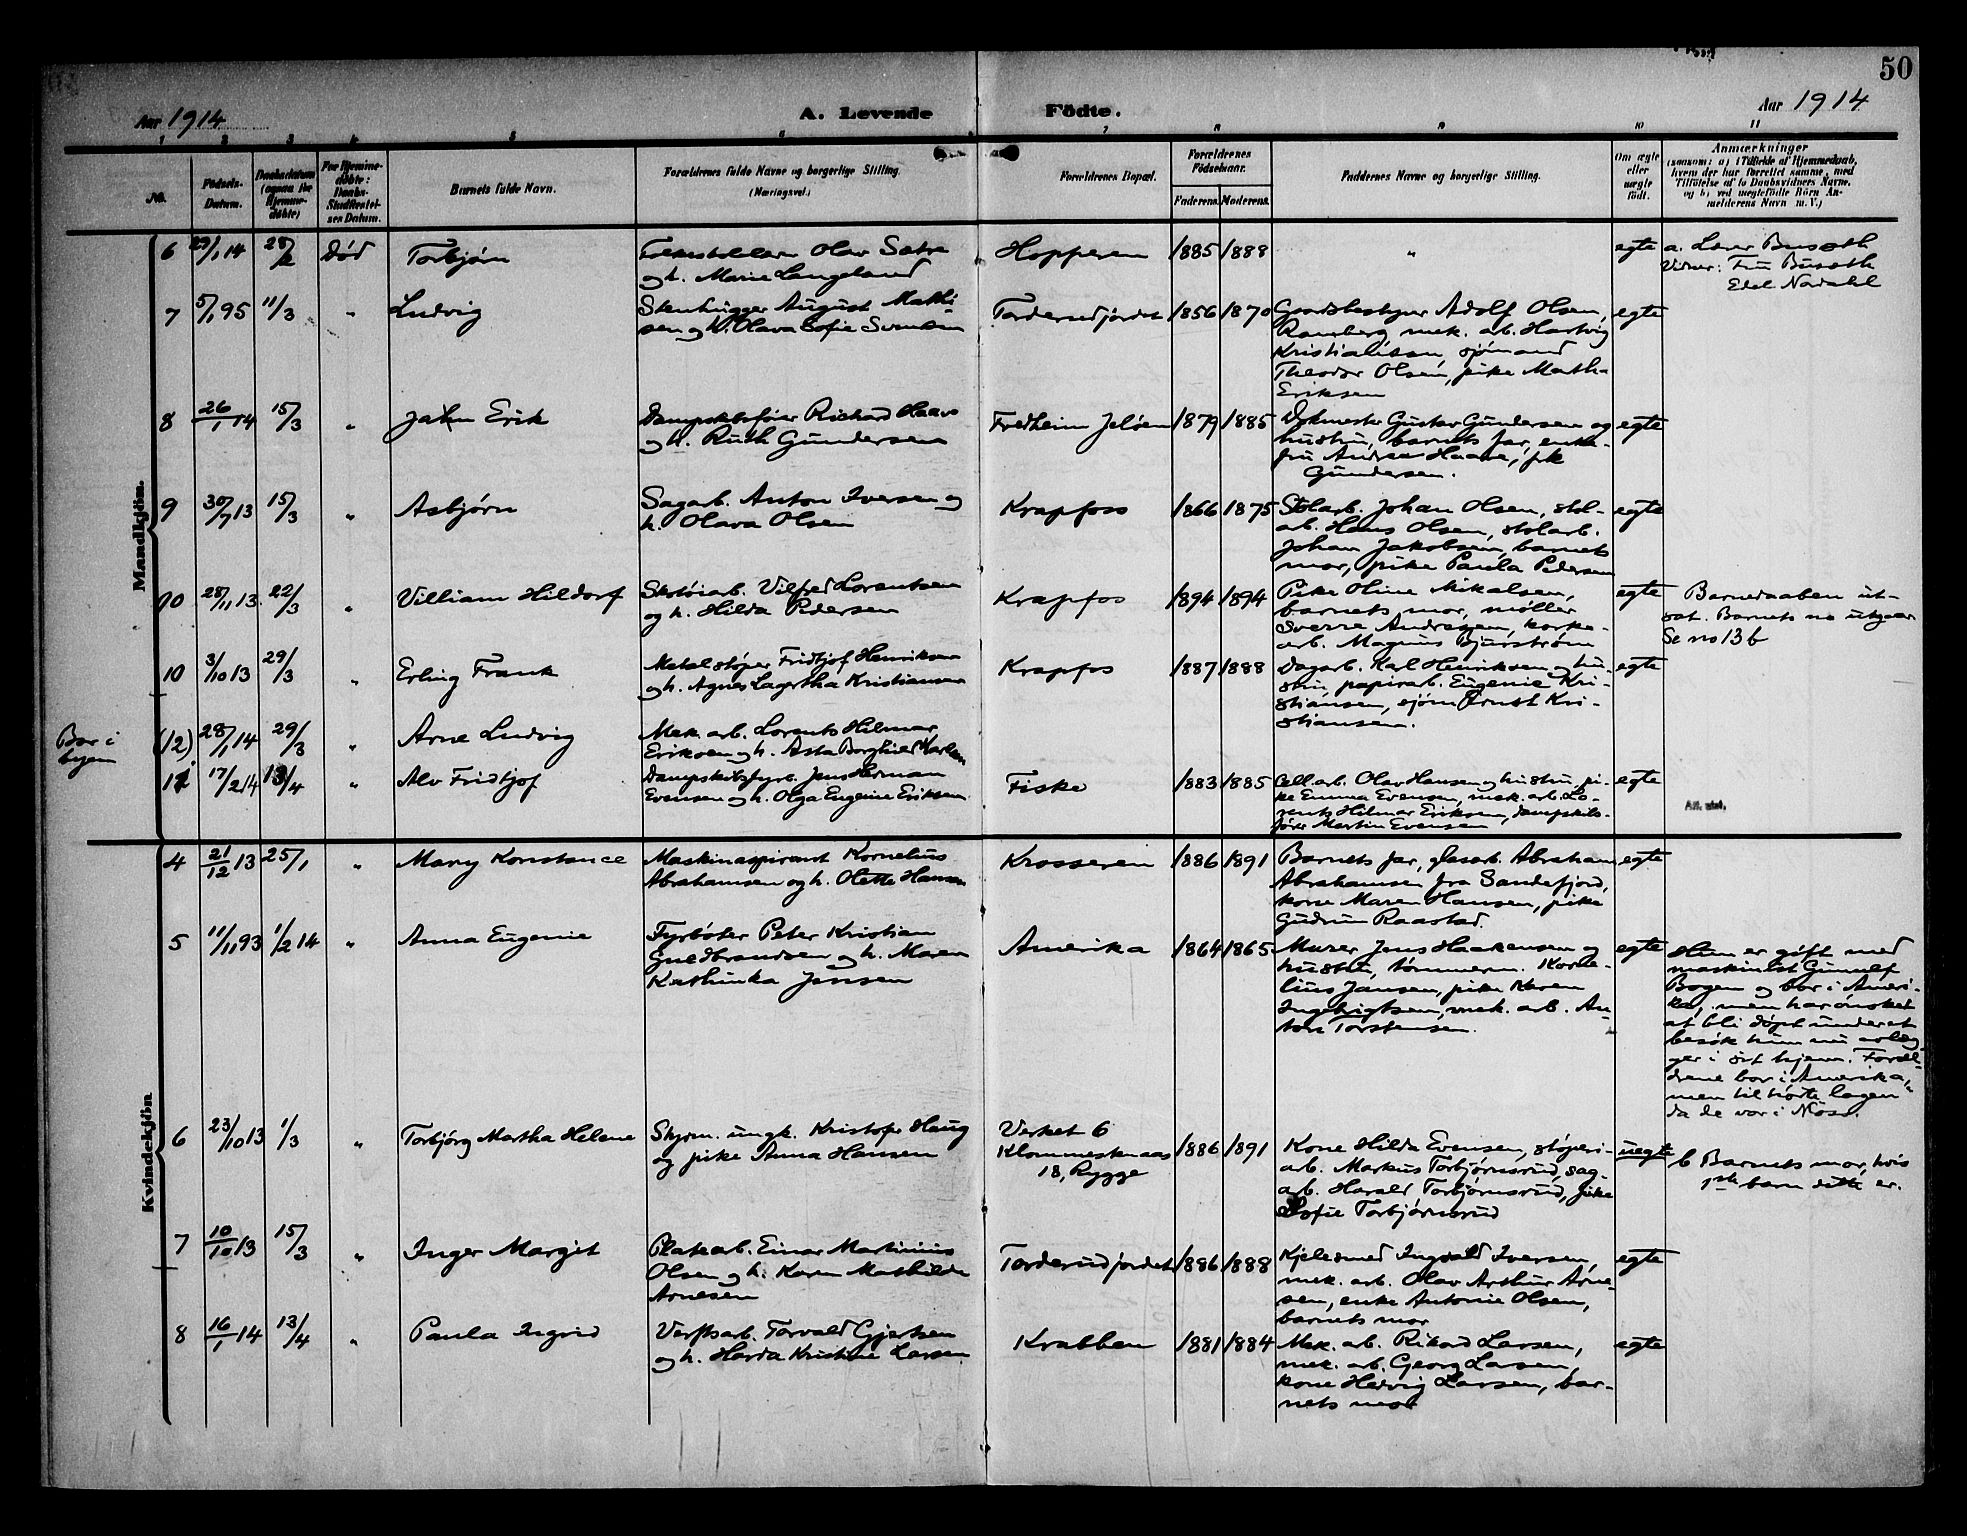 50
Aar 1914
A. Levende Födte.
Aar 1914
1 2 3 4 5 6 7 8 9 10 11
No.
Födsels-
Datum.
Daabsdatum
(ogsaa for
Hjemme-
döbte)
For Hjemme-
döbte:
Daabs-
Stadfæstel-
ses Datum.
Barnets fulde Navn.
Forældrenes fulde Navne og borgerlige Stilling.
(Næringsvei.)
Forældrenes Bopæl.
Forældrenes
Födselsaar.
Faderens. Moderens.
Faddernes Navne og borgerlige Stilling.
Om ægte
eller
uægte
födt.
Anmærkninger
(saasom: a) i Tilfælde af Hjemmedaab,
hvem der har forrettet samme, med
Tilföielse af to Daabsvidners Navne,
og b) ved uægtefödte Börn An-
melderens Navn m. V.)
Mandkjön.
6 29/1 14 28/2 Död Torbjørn
Olav Sætre
og h. Marie Langeland
Hopperen 1885 1888 " egte
a. Lærer Busæth
Vidner: Fru Busæth
Edel Nadahl
7 5/1 95 11/3 " Ludvig
Stenhugger August Mathi-
sen og h. Olava Sofie Svensen
Torderudjordet 1856 1870
Gaardsbestyrer Adolf Olsen,
Ramberg, mek. arb. Hartvig
Kristiansen, sjömand
Theodor Olsen, pike Martha
Eriksen
egte
8 26/1 14 15/3 " Jahn Erik
Dampskibsfører Richard Haave
og h. Ruth Gundersen
Fredheim Jeløen 1879 1885
Gustav Gundersen og
hustru, barnets far, enke-
fru Andrea Haave, pk
Gundersen.
egte
9 30/7 13 15/3 " Asbjørn
Sagarb. Anton Iversen og
h. Olava Olsen
Krapfoss 1866 1875
Stolarb. Johan Olsen, stol-
arb. Hans Olsen, stolarb.
Johan Jakobsen, barnets
mor, pike Paula Pedersen
egte
10 28/11 13 22/3 " Villiam Hildorf
Skotøiarb. Vilfred Lorentsen
og h. Hilda Pedersen
Krapfos 1894 1894
Pike Oline Mikalsen,
barnets mor, møller
Sverre Andresen, korke-
arb. Magnus Bjurstrøm
egte
Barnedaaben ut-
sat. Barnets no utgaar
Se no 13 b
10 3/10 13 29/3 " Erling Frank
Metalstøper Fridtjof Henriksen
og h. Agnes Lagertha Kristiansen
Krapfos 1887 1888
Dagarb. Karl Henriksen og hu-
stru, papirarb. Eugenie Kri-
stiansen, sjöm Ernst Kri-
stiansen.
egte
Bor i
byen
(12) 28/1 14 29/3 " Arne Ludvig
Mek. arb. Lorents Hilmar
Eriksen og h. Asta Borghild Karlsen
11 17/2 14 13/4 " Alv Fridtjof
Dampskibsfyrb. Jens Herman
Evensen og h. Olga Eugenie Eriksen
Fiske 1883 1885
Cell. arb. Olav Hansen og hustru, pi-
ke Emma Evensen, mek. arb. Lo-
rents Hilmar Eriksen, dampskibs-
fører Martin Evensen
egte
Att. utst.
Kvindekjön
4 21/12 13 25/1 " Mary Konstance
Maskinaspirant Kornelius
Abrahamsen og h. Olette Hansen
Krosseren 1886 1891
Barnets far, glasarb. Abraham
Abrahamsen fra Sandefjord,
kone Maren Hansen, pike
Gudrun Raastad.
egte
5 11/11 93 1/2 14 " Anna Eugenie
Fyrbøter Peter Kristian
Guldbrandsen og h. Maren
Kathinka Jensen
Amerika 1864 1865
Murer Jens Haakensen og
hustru, tømmerm. Korne-
lius Jansen, pike Karen
Ingebrigtsen, mek. arb. An-
ton Torstensen.
egte
Hun er gift med
maskinist Gunnulf
Bogen og bor i Ameri-
ka, men har ønsket
at bli døpt under et
besøk hun nu avlæg-
ger i sit hjem. Foræl-
drene bor i Amerika,
men tilhørte lagen
da de var i Moss.
6 23/10 13 1/3 " Torbjørg Martha Helene
Skom. ungk. Kristofer Haug
og pike Anna Hansen
Verket 6
Klommestenaas
18, Rygge
1886 1891
Kone Hilda Evensen, støperi-
arb. Markus Torbjørnsrud, sag-
arb. Harald Torbjørnsrud, pike
Sofie Torbjørnsrud
uegte
b Barnets mor, hvis
1ste barn dette er.
7 10/10 13 15/3 " Inger Margit
Platearb. Einar Martinius
Olsen og h. Karen Mathilde
Arnesen
Torderudjordet 1886 1888
Kjelesmed Ingvald Iversen,
mek. arb. Olav Arthur Arne-
sen, enke Antonie Olsen,
barnets mor
egte
8 16/1 14 13/4 " Paula Ingrid
Verftsarb. Torvald Gjertsen
og h. Harda Kristine Larsen
Krabben 1881 1884
Mek. arb. Rikard Larsen,
mek. arb. Georg Larsen,
kone Hedvig Larsen, bar-
nets mor
egte